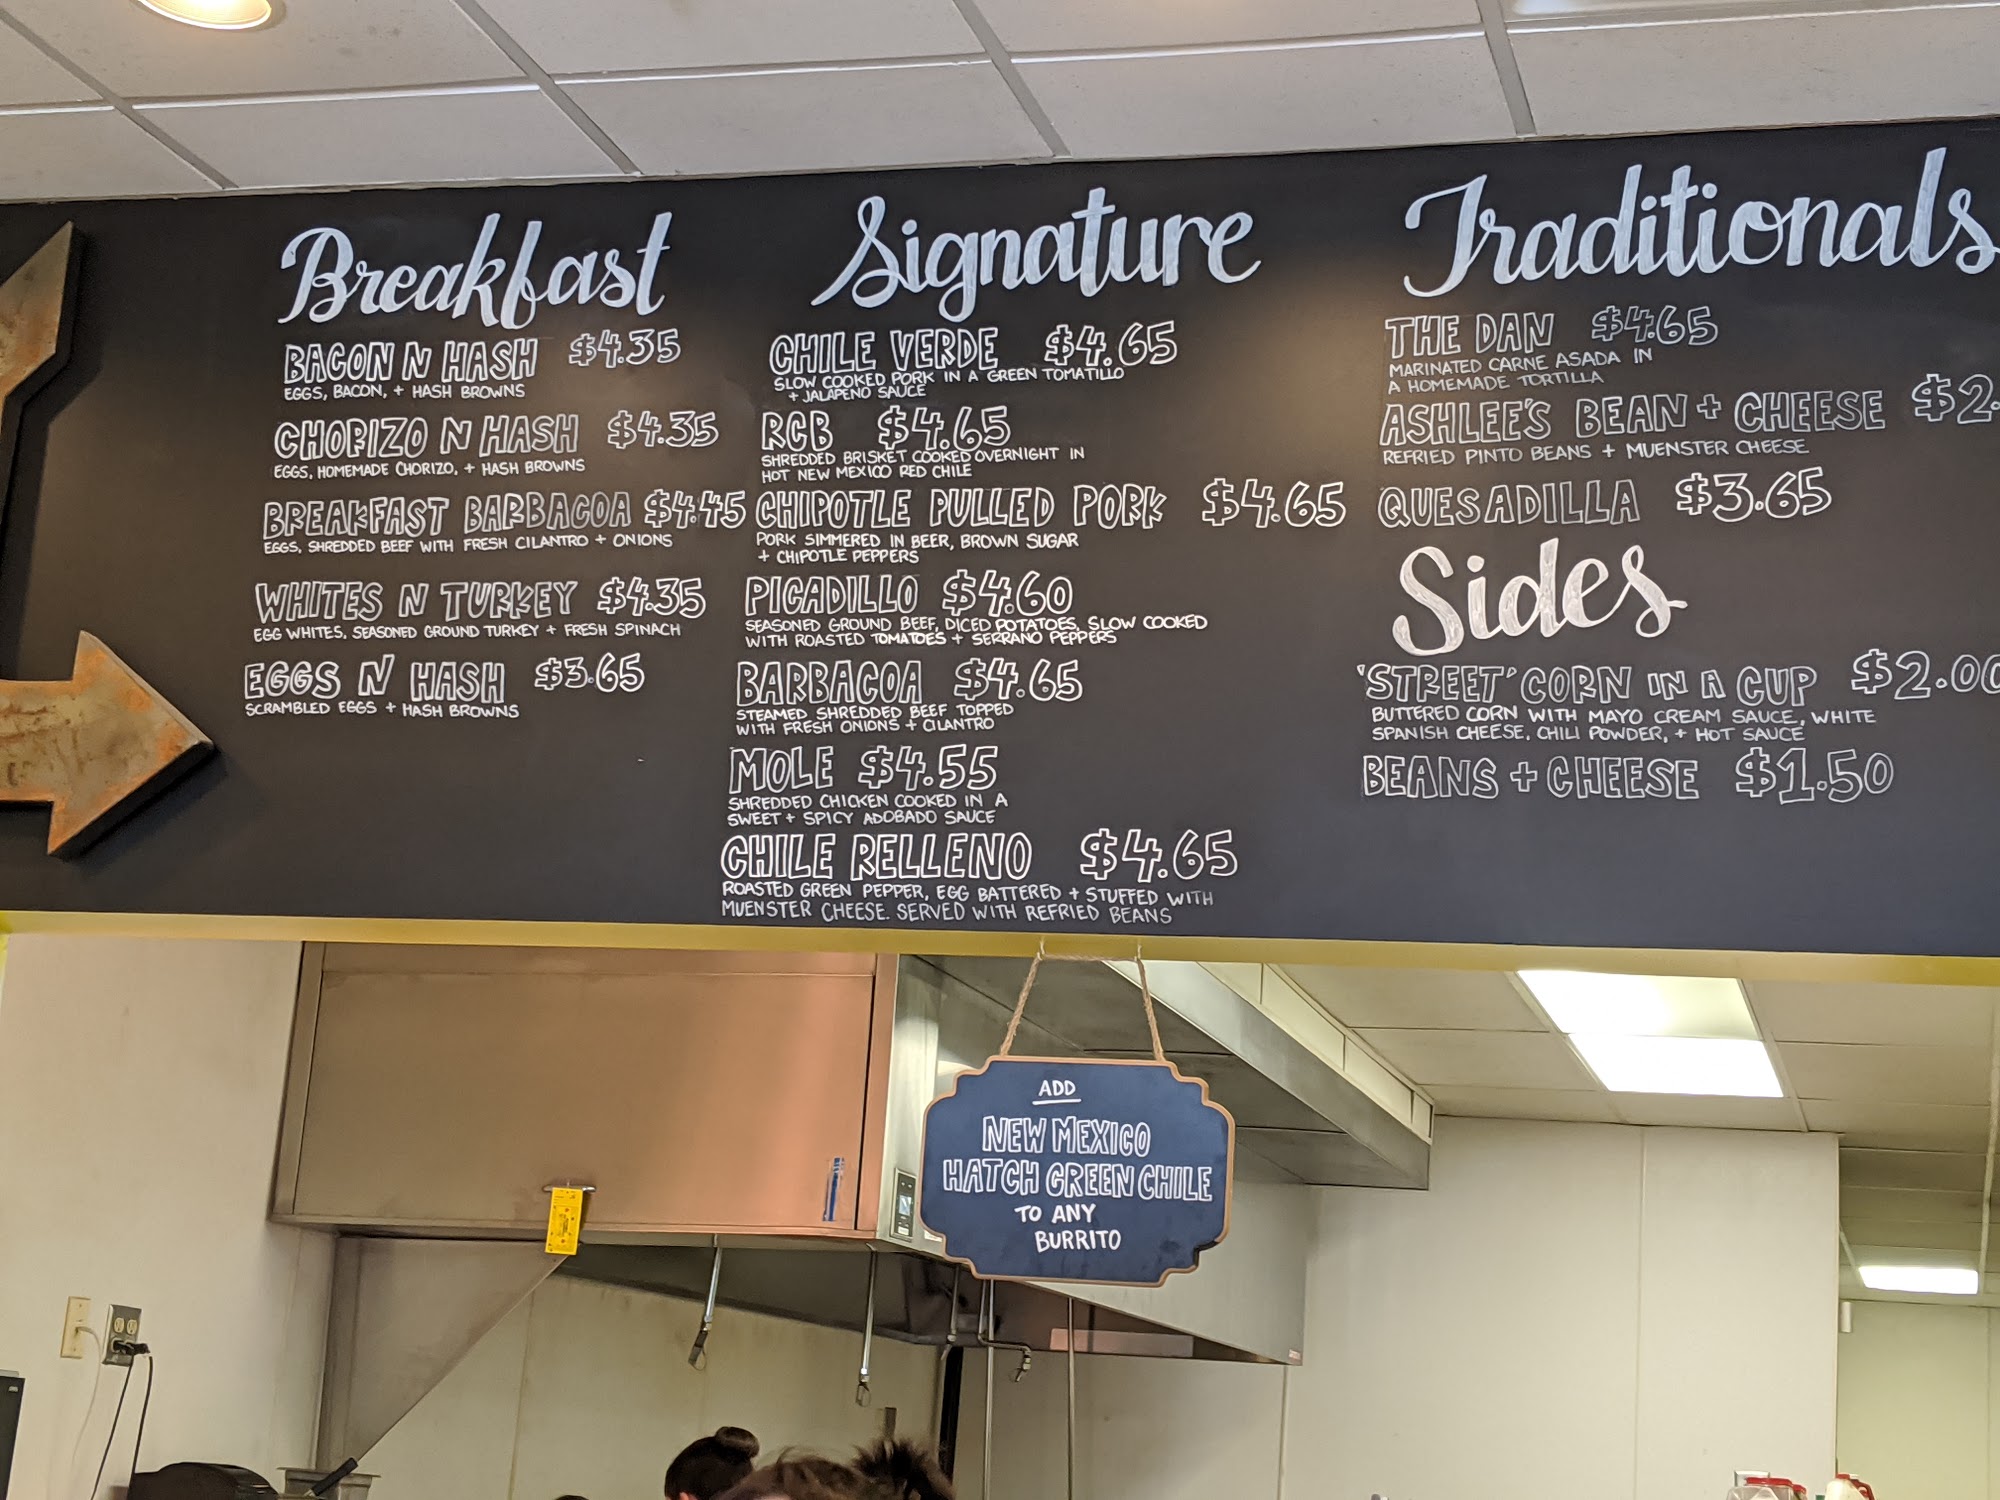 Breakfast
BACON N HASH $4.35
EGGS, BACON, + HASH BROWNS
CHORIZO N HASH $4.35
EGGS, HOMEMADE CHORIZO, + HASH BROWNS
BREAKFAST BARBACOA $4.45
EGGS, SHREDDED BEEF WITH FRESH CILANTRO + ONIONS
WHITES N TURKEY $4.35
EGG WHITES, SEASONED GROUND TURKEY + FRESH SPINACH
EGGS N HASH $3.65
SCRAMBLED EGGS + HASH BROWNS
Signature
CHILE VERDE $4.65
SLOW COOKED PORK IN A GREEN TOMATILLO
+ JALAPENO SAUCE
RCB $4.65
SHREDDED BRISKET COOKED OVERNIGHT IN
HOT NEW MEXICO RED CHILE
CHIPOTLE PULLED PORK $4.65
PORK SIMMERED IN BEER, BROWN SUGAR
+ CHIPOTLE PEPPERS
PICADILLO $4.60
SEASONED GROUND BEEF, DICED POTATOES, SLOW COOKED
WITH ROASTED TOMATOES + SERRANO PEPPERS
BARBACOA $4.65
STEAMED SHREDDED BEEF TOPPED
WITH FRESH ONIONS + CILANTRO
MOLE $4.55
SHREDDED CHICKEN COOKED IN A
SWEET + SPICY ADOBADO SAUCE
CHILE RELLENO $4.65
ROASTED GREEN PEPPER, EGG BATTERED + STUFFED WITH
MUENSTER CHEESE. SERVED WITH REFRIED BEANS
Traditionals
THE DAN $4.65
MARINATED CARNE ASADA IN
A HOMEMADE TORTILLA
ASHLEE'S BEAN + CHEESE $2.
REFRIED PINTO BEANS + MUENSTER CHEESE
QUESADILLA $3.65
Sides
'STREET' CORN IN A CUP $2.00
BUTTERED CORN WITH MAYO CREAM SAUCE, WHITE
SPANISH CHEESE, CHILI POWDER, + HOT SAUCE
BEANS + CHEESE $1.50
ADD
NEW MEXICO
HATCH GREEN CHILE
TO ANY
BURRITO